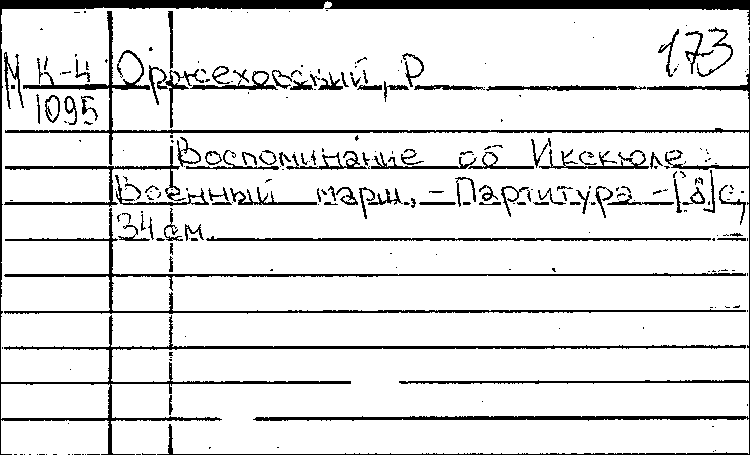 173
М К-4 Оржеховский, Р
1095
Воспоминание об Икскюле:
Военный марш. - Партитура - [8]с,
34 см.